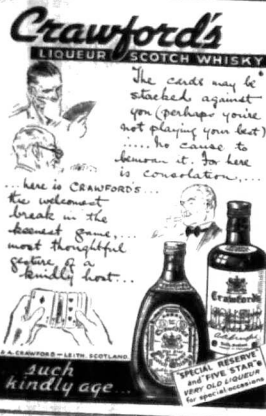 Crawford's
LIQUEUR SCOTCH WHISKY
The cards may be
stacked against
you (perhaps you're
not playing your best)
..... No cause to
bemoan it. For here
is consolation,....
...here is CRAWFORD'S...
the welcomest
break in the
keenest game,...
most thoughtful
gesture of a
kindly host...
Crawford's
A. A. CRAWFORD — LEITH, SCOTLAND
such
kindly age...
SPECIAL RESERVE
and "FIVE STAR"
VERY OLD LIQUEUR
for special occasions